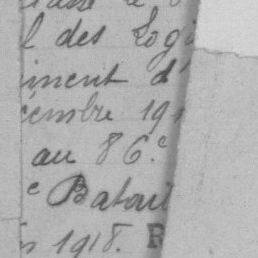 l des Logi
iment d'
cembre 191
au 86.e
e Batail
1918. R